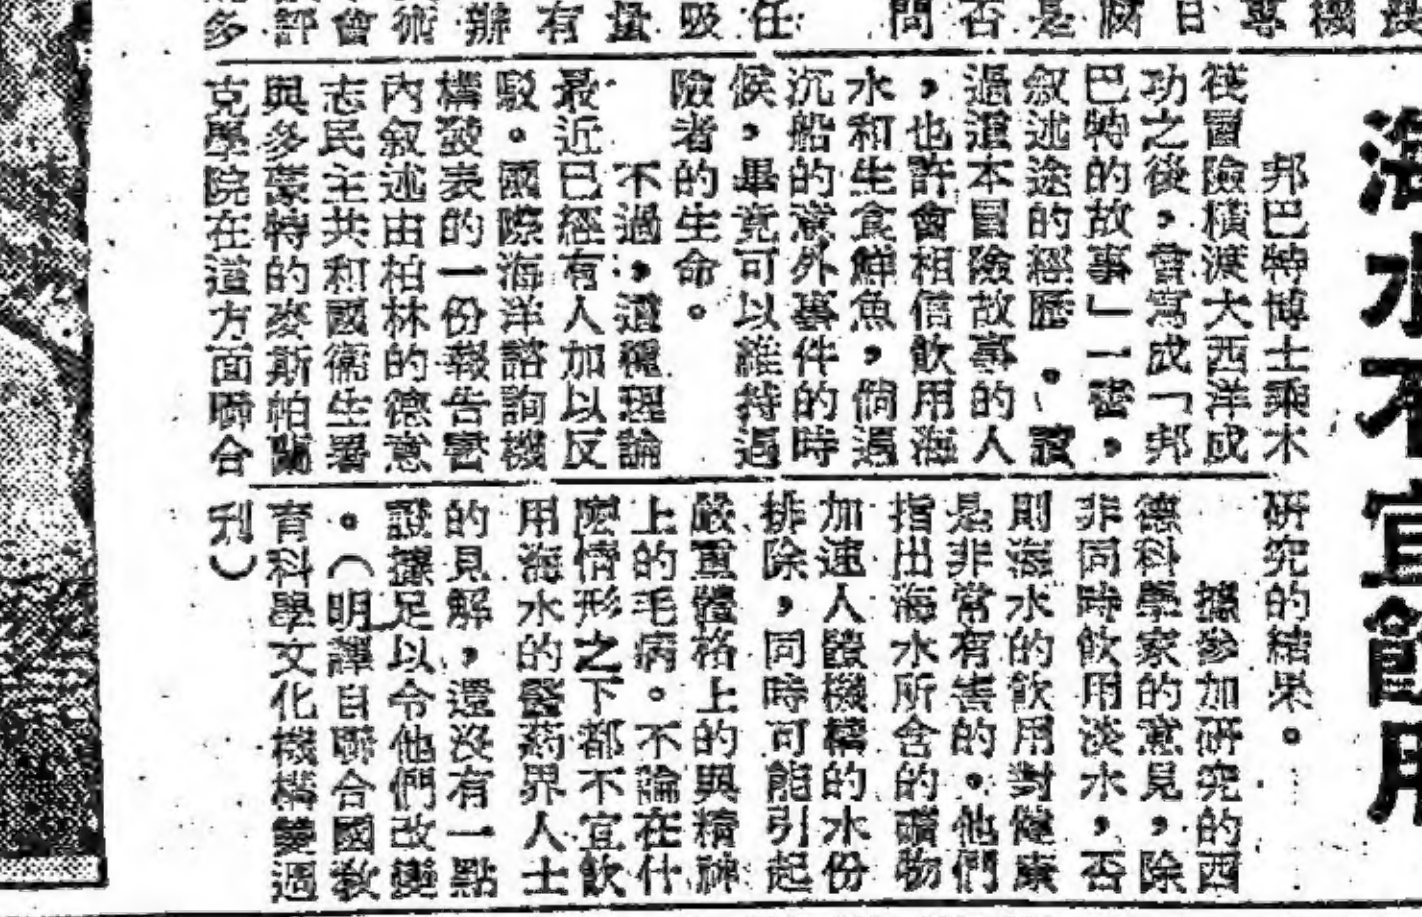 海水不宜飲用
邦巴特博士乘木
筏冒險橫渡大西洋成
功之後，曾寫成「邦
巴特的故事」一書，
叙述途的經歷。讀
過這本冒險故事的人
，也許會相信飲用海
水和生食鮮魚，倘遇
沉船的意外事件的時
候，畢竟可以維持遇
險者的生命。
不過，這種理論
最近已經有人加以反
駁。國際海洋諮詢機
構發表的一份報告書
內叙述由柏林的德意
志民主共和國衞生署
與多蒙特的麥斯帕蘭
克學院在這方面聯合
研究的結果。
據參加研究的西
德科學家的意見，除
非同時飲用淡水，否
則海水的飲用對健康
是非常有害的。他們
指出海水所含的礦物
加速人體機構的水份
排除，同時可能引起
嚴重體格上的與精神
上的毛病。不論在什
麽情形之下都不宜飲
用海水的醫葯界人士
的見解，還沒有一點
證據足以令他們改變
。（明譯自聯合國教
育科學文化機構雙週
刋）